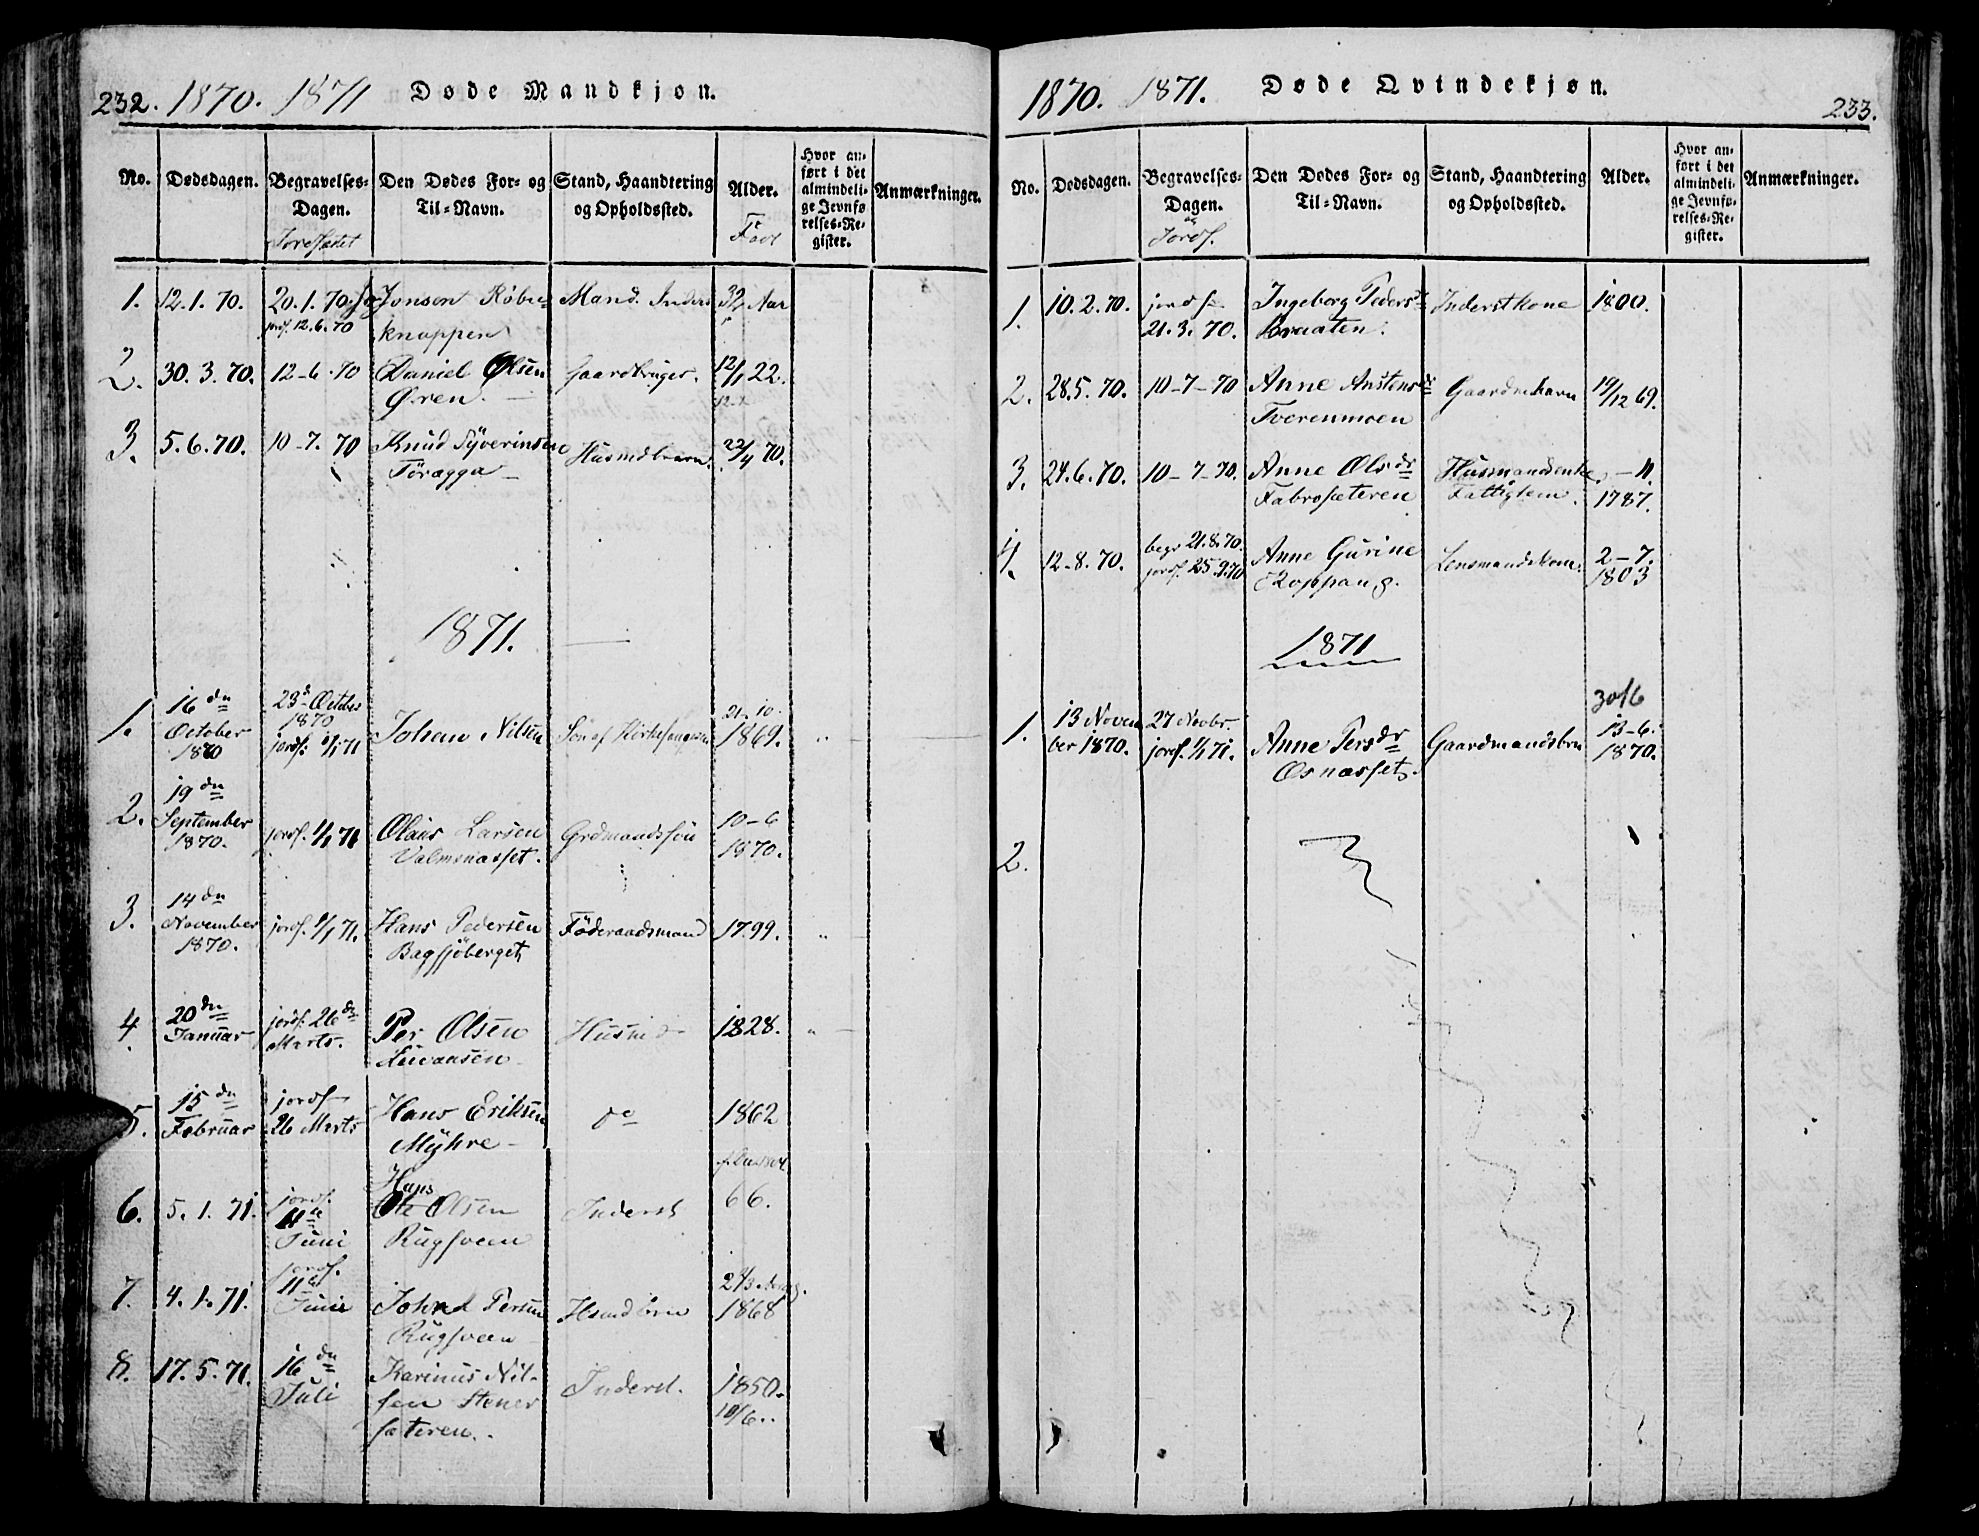 232. 1870. 1871 Døde Mandkjøn.
No. Dødsdagen. Begravelses-Dagen. Den Dødes For- og Til-Navn. Stand, Haandtering og Opholdssted. Alder. Hvor anført i det almindelige Jevnførelses-Register. Anmærkninger.
Jordfæstet
Født
1. 12.1.70. 20.1.70 Jonson Mand. Inders 32 Aar
jordf. 12.6.70 knappen
2. 30.3.70. 12-6-70 Daniel Olsen Gaardbruger. 12/1 22.
Øren.
3. 5.6.70. 10-7-70 Knud Syverinsen Husmdbarn. 22/4 70.
Töragga
1871.
1. 16de October 1870 23d October 1870 jordf. 1/1 71 Johan Nilsen Søn af 21-10. 1869.
2. 19de September 1870. jordf. 1/1 71 Olaus Larsen Grdmandssön 10-6 1870.
Valmsnæsset.
3. 14de November 1870. jordf. 1/1 71. Hans Pedersen Föderaadsmand 1799.
Bagsjöberget
4. 20de Januar jordf. 26de Marts. Per Olsen Husmd 1828.
5. 15de Februar jordf 26 Marts Hans Eriksen do 1862
Myhre
6. 5.1.71. jordf. 11te Juni Hans Ole Olsen Inderst 66.
Rugsveen
7. 4.1.71. jordf. 11te Juni Johan Persen Hsmdbrn 1868
Rugsveen
8. 17.5.71. 16de Juli Karinus Nil- Inderst. 1850.
sen Stener 10/6.
sæteren.
1870. 1871. Døde Qvindekjøn. 233.
No. Dødsdagen. Begravelses-Dagen. Den Dødes For- og Til-Navn. Stand, Haandtering og Opholdssted. Alder. Hvor anført i det almindelige Jevnførelses-Register. Anmærkninger.
og Jordf.
1. 10.2.70. jordf. Ingeborg Pedersdr Inderstkone 1800.
21.3.70. Braaten.
2. 28.5.70. 10-7-70 Anne Anstensdr Gaardmbarn 19/12 69.
Tverenmoen
3. 24.6.70. 10-7-70. Anne Olsdr Husmandsenke
Fabrosæteren Fattiglem. 1787.
4. 12-8.70. begr 21.8.70. Anne Gurine Lensmandskone. 2-7.
jordf. 25.9.70 Koppang. 1803
1871
30/6
1. 13 November 1870. 27 Novbr. jordf. 1/1 71. Anne Persdr Gaardmandsbrn 13-6. 1870.
Osnæsset.
2.